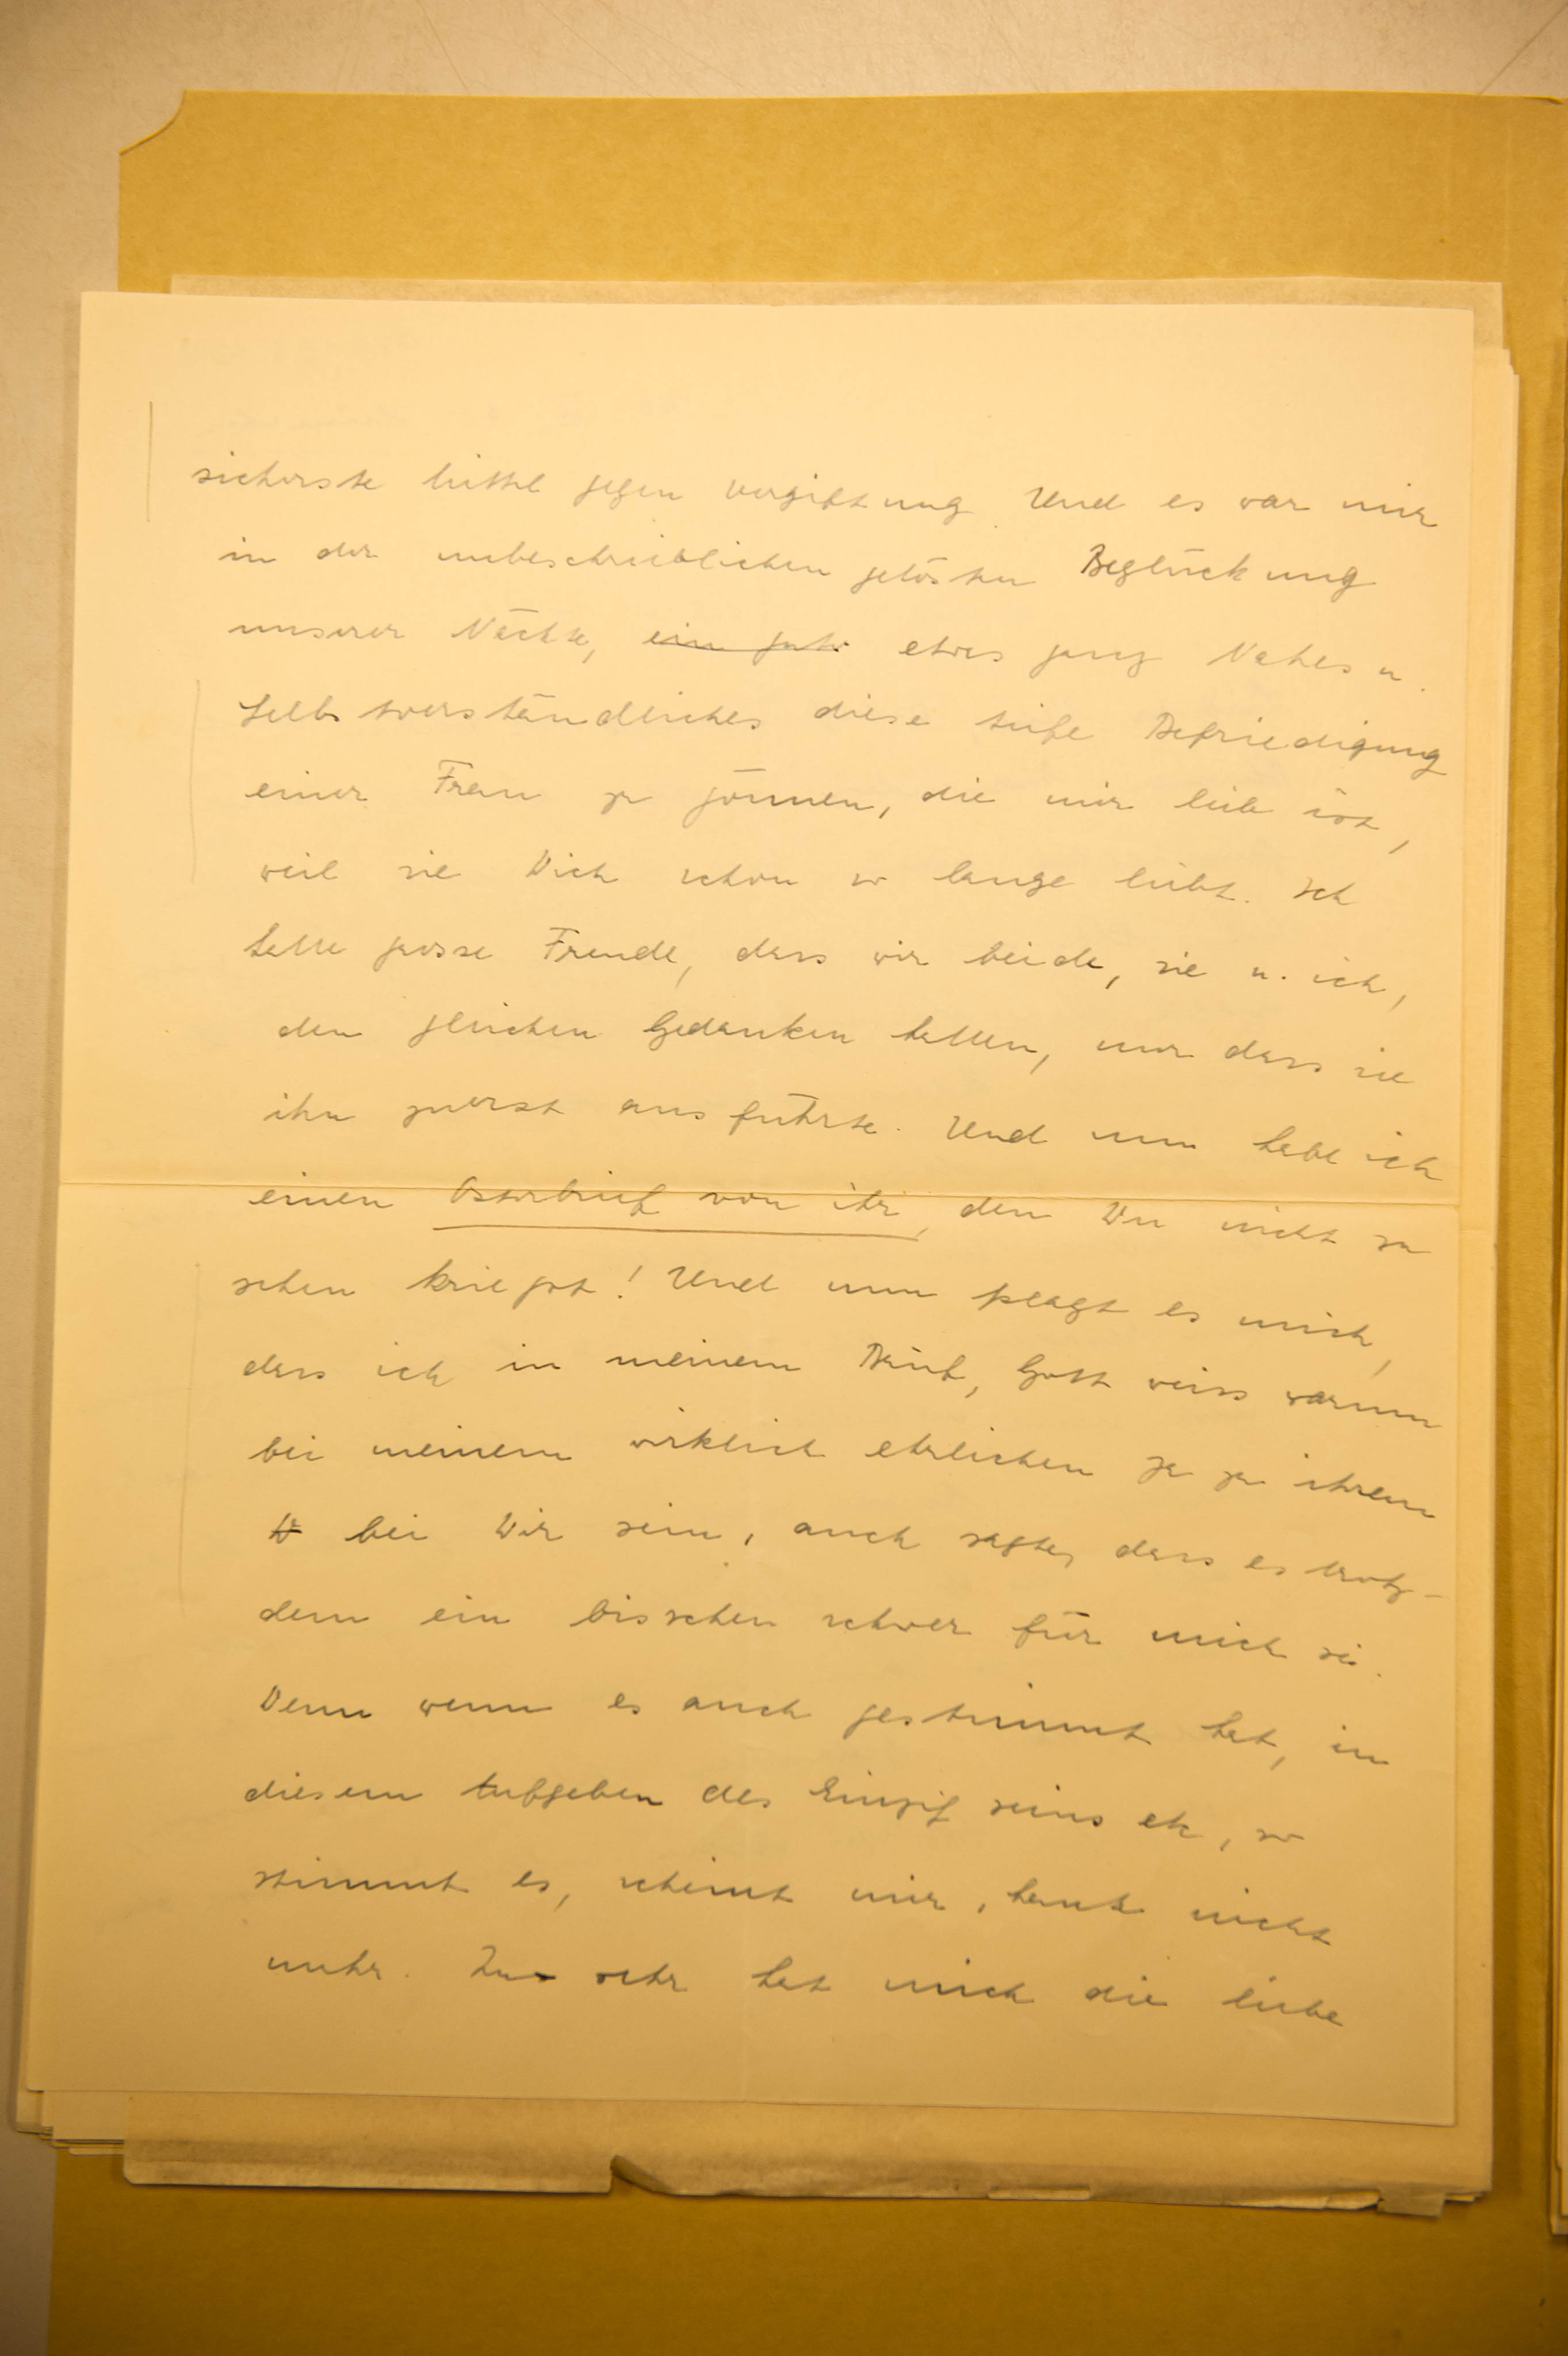 sicherste Mittel gegen Vergiftung. Und es war mir
in der unbeschreiblichen gelösten Beglückung
unserer Nächte, ein gutes etwas ganz Nahes u.
Selbstverständliches diese tiefe Befriedigung
einer Frau zu gönnen, die mir lieb ist,
weil sie Dich schon so lange liebt. Ich
hatte grosse Freude, dass wir beide, sie u. ich,
den gleichen Gedanken hatten, nur dass sie
ihn zuerst ausführte. Und nun habe ich
einen Osterbrief von ihr, den Du nicht zu
sehen kriegst! Und nun plagt es mich,
dass ich in meinem Brief, Gott weiss warum
bei meinem wirklich ehrlichen Ja zu ihrem
bei Dir sein, auch sagte, dass es trotz-
dem ein bisschen schwer für mich sei.
Denn wenn es auch gestimmt hat, in
diesem Aufgeben des Einzigseins etc, so
stimmt es, scheint mir, heute nicht
mehr. Zu sehr hat mich die Liebe